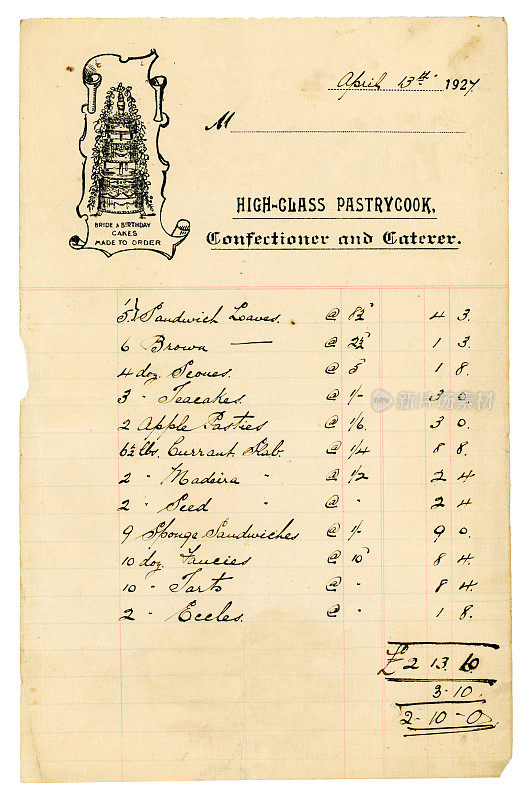 April 13th 1927
M
BRIDE & BIRTHDAY
CAKES
MADE TO ORDER
HIGH-CLASS PASTRYCOOK,
Confectioner and Caterer.
Sandwich Loaves. @ 8½ 4 3.
6 Brown — @ 2½ 1 3
4 doz. Scones. @ 5 1 8.
3 " Teacakes. @ 1/- 3 0.
2 Apple Pasties @ 1/6. 3 0.
6½ lbs. Currant Slab. @ 1/4 8 8.
2 " Madeira " @ 1/2 2 4
2 " Seed " @ " 2 4
9 Sponge Sandwiches @ 1/- 9 0.
10 doz. Fancies @ 10 8 4.
10 " Tarts @ " 8 4.
2 " Eccles. @ " 1 8.
£ 2 13. 10.
3-10.
2-10-0.
新图网 iStock